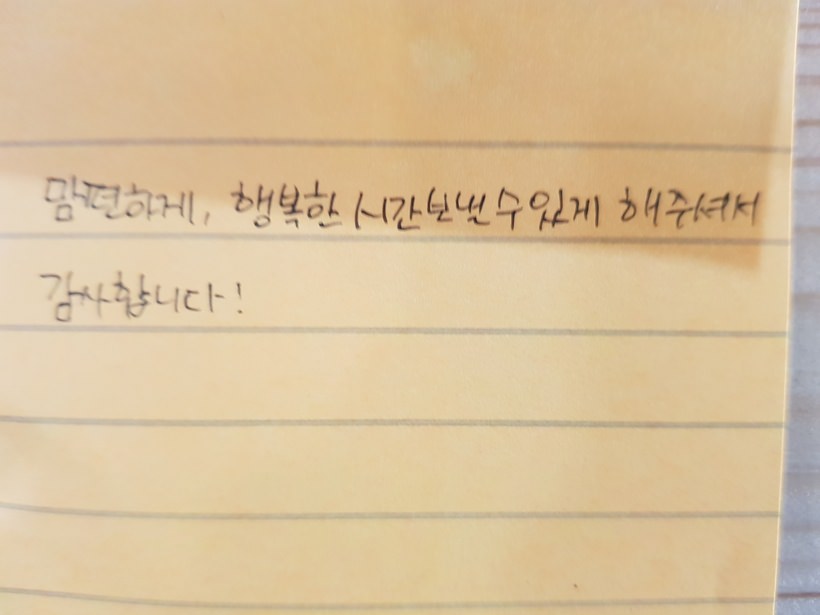 맘편하게, 행복한 시간보낼수있게 해주셔서
감사합니다!